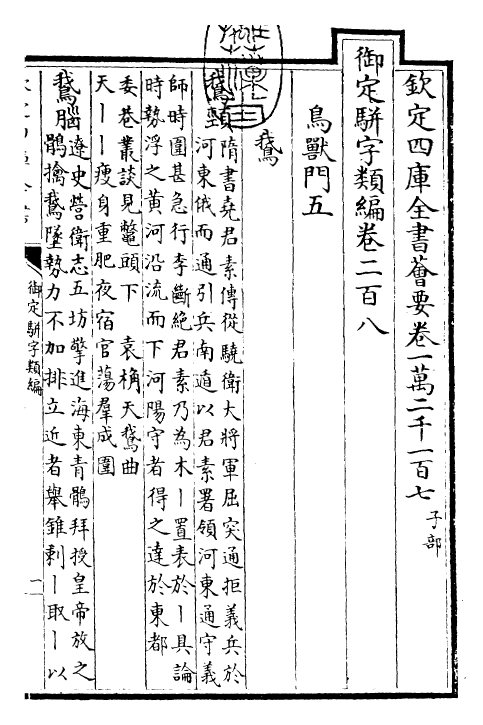 欽定四庫全書薈要卷一萬二千一百七 子部
御定駢字類編卷二百八
鳥獸門五
鵞
鵞頸 隋書堯君素傳從驍衛大將軍屈突通拒義兵於
河東俄而通引兵南遁以君素署領河東通守義
師時圍甚急行李斷絕君素乃為木丨置表於丨具論
時勢浮之黄河沿流而下河陽守者得之達於東都
委巷叢談見鼈頭下 袁桷天鵞曲
天丨丨瘦身重肥夜宿官蕩羣成圍
鵞腦 遼史營衛志五坊擎進海東青鶻拜授皇帝放之
鶻擒鵞墜勢力不加排立近者舉錐刺丨取丨以
御定駢字類編
一